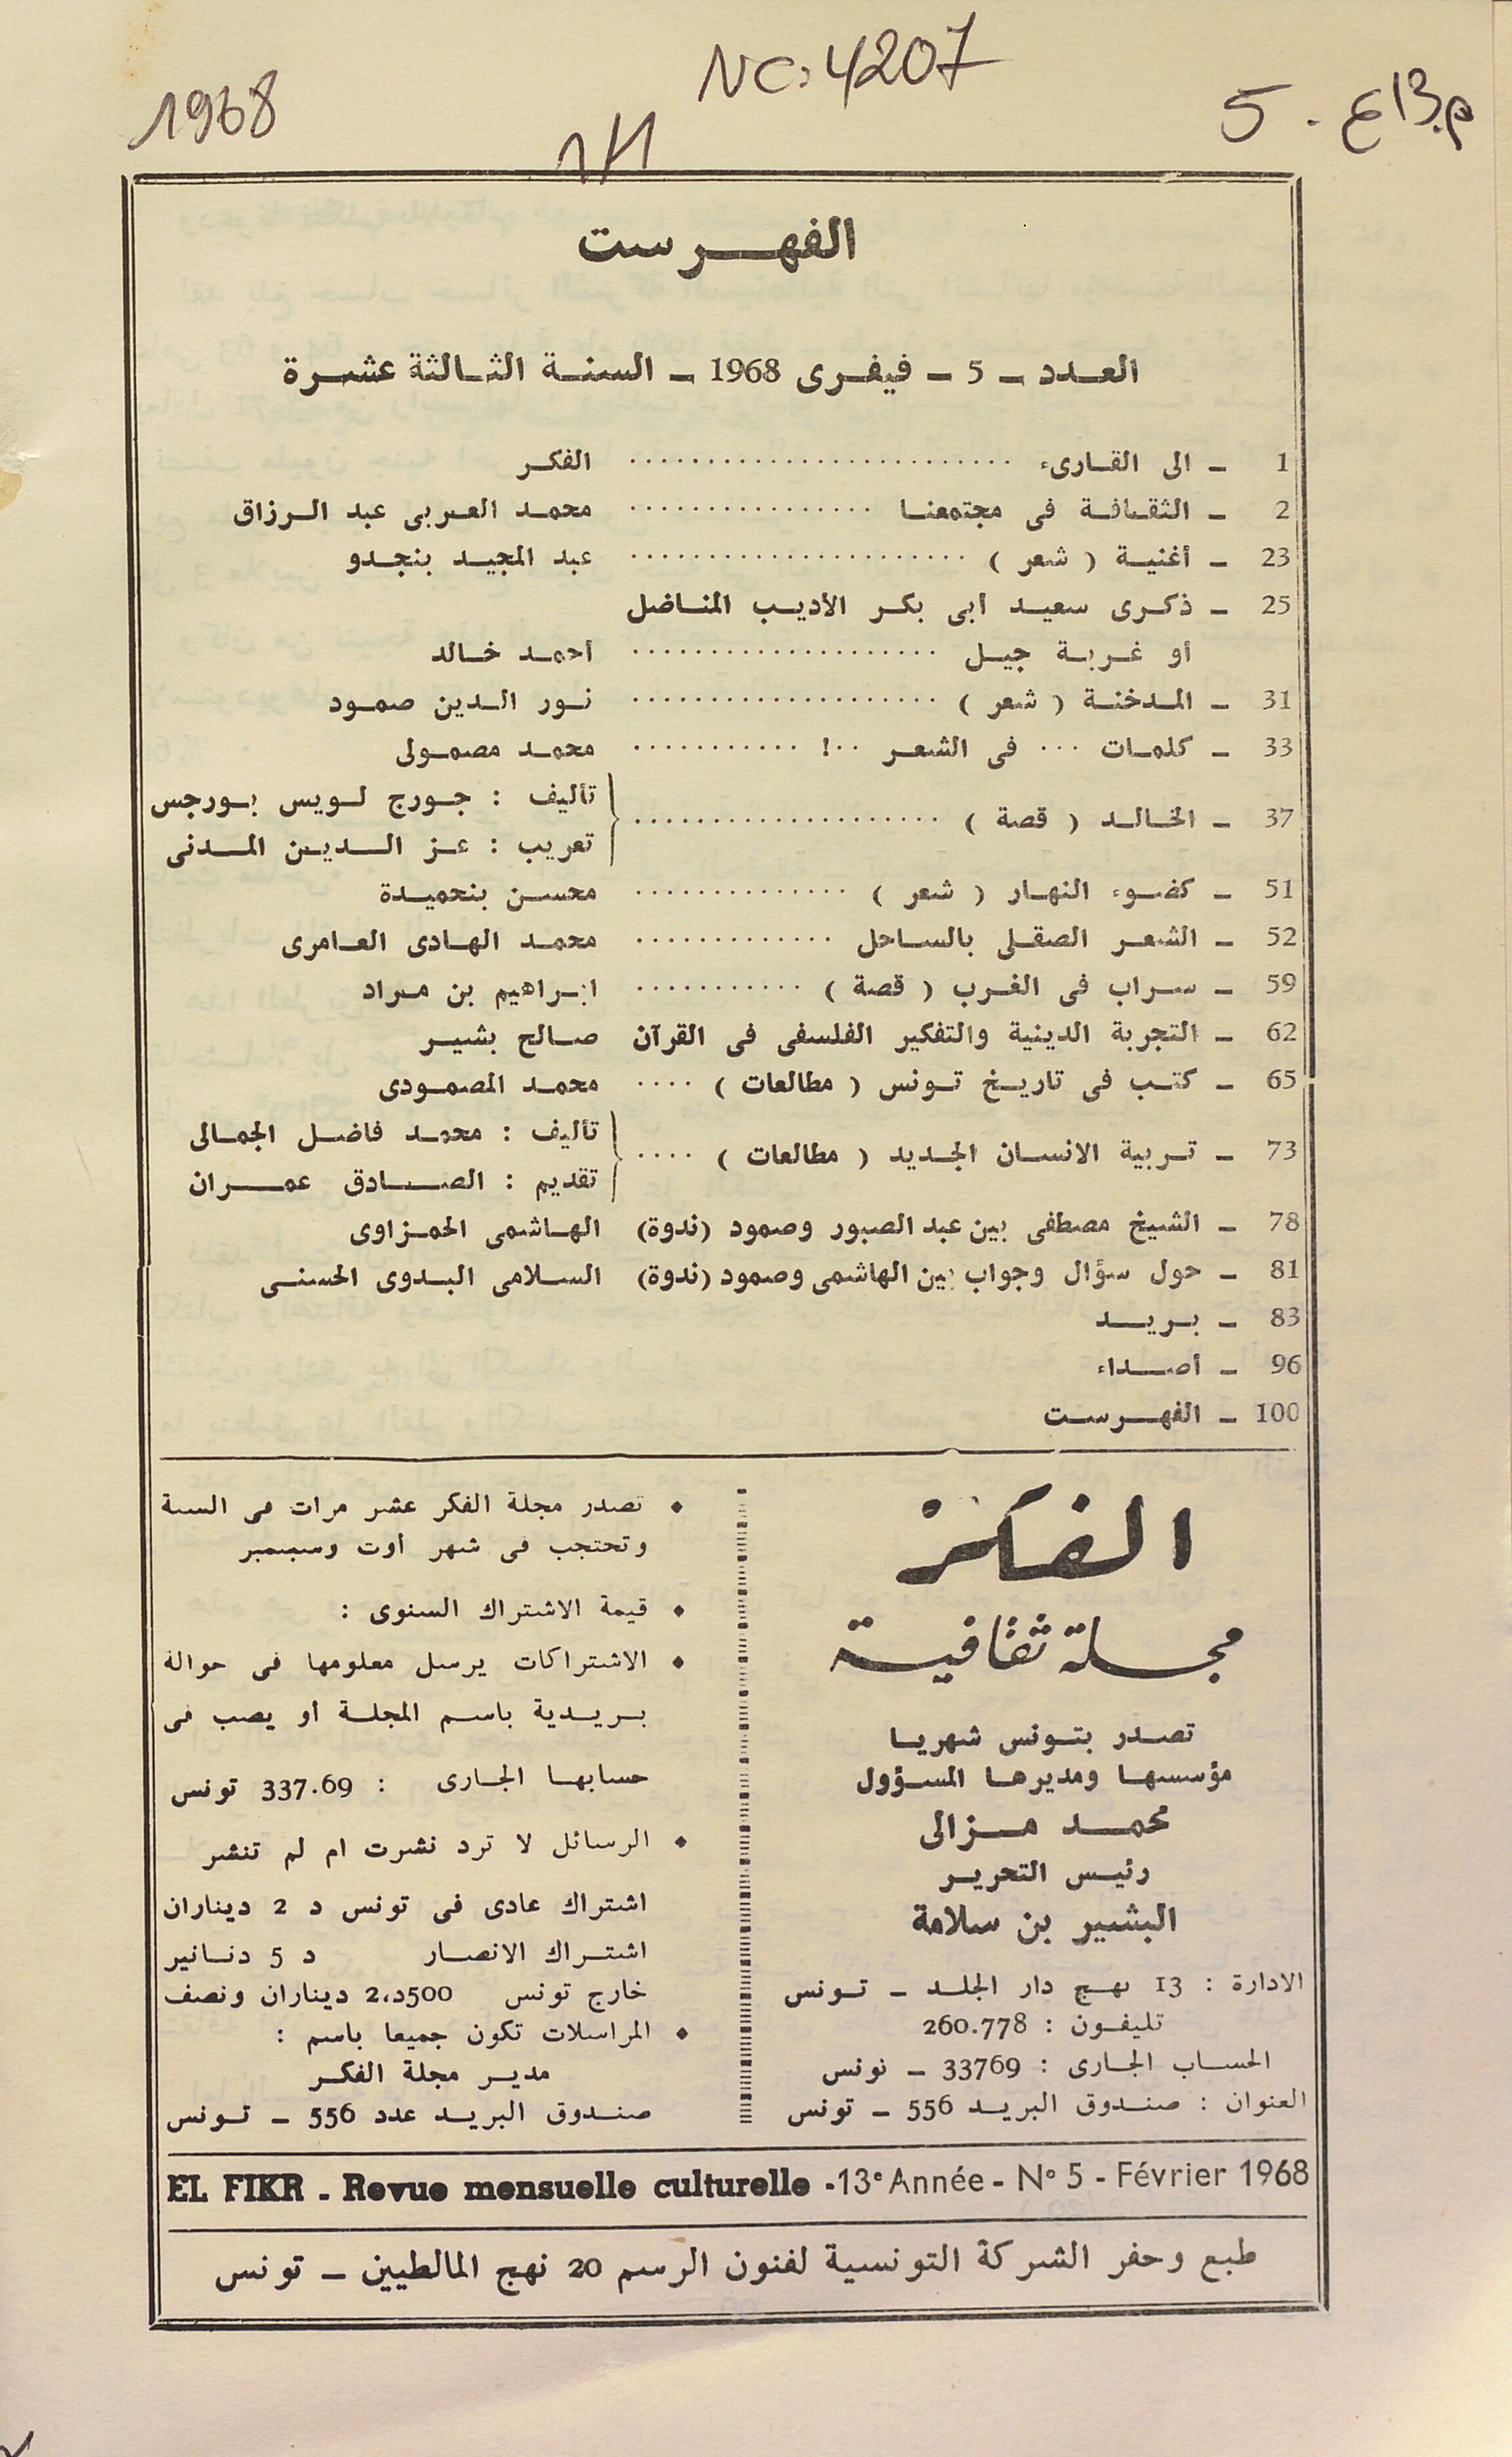 NC:4207
1968
م.13ع - 5
الفهرست
العدد - 5 - فيفرى 1968 - السنة الثالثة عشرة
1 - الى القارىء .......................... الفكر
2 - الثقافة فى مجتمعنا ................. محمد العربى عبد الرزاق
23 - أغنية ( شعر ) ....................... عبد المجيد بنجدو
25 - ذكرى سعيد أبى بكر الأديب المناضل
أو غربة جيل ..................... أحمد خالد
31 - المدخنة ( شعر ) ..................... نور الدين صمود
33 - كلمات ... فى الشعر ..! ........... محمد مصمولى
37 - الخالد ( قصة ) .....................
تأليف : جورج لويس بورجس
تعريب : عز الدين المدنى
51 - كضوء النهار ( شعر ) .............. محسن بنحميدة
52 - الشعر الصقلى بالساحل ............. محمد الهادى العامرى
59 - سراب فى الغرب ( قصة ) ........... ابراهيم بن مراد
62 - التجربة الدينية والتفكير الفلسفى فى القرآن صالح بشير
65 - كتب فى تاريخ تونس ( مطالعات ) .... محمد المصمودى
73 - تربية الانسان الجديد ( مطالعات ) ....
تأليف : محمد فاضل الجمالى
تقديم : الصادق عمران
78 - الشيخ مصطفى بين عبد الصبور وصمود (ندوة) الهاشمى الحمزاوى
81 - حول سؤال وجواب بين الهاشمى وصمود (ندوة) السلامى البدوى الحسنى
83 - بريد
96 - أصداء
100 - الفهرست
الفكر
مجلة ثقافية
تصدر بتونس شهريا
مؤسسها ومديرها المسؤول
محمد مزالى
رئيس التحرير
البشير بن سلامة
الادارة : 13 نهج دار الجلد - تونس
تليفون : 260.778
الحساب الجارى : 33769 - تونس
العنوان : صندوق البريد 556 - تونس
• تصدر مجلة الفكر عشر مرات فى السنة
وتحتجب فى شهر أوت وسبتمبر
• قيمة الاشتراك السنوى :
• الاشتراكات يرسل معلومها فى حوالة
بريدية باسم المجلة أو يصب فى
حسابها الجارى : 337.69 تونس
• الرسائل لا ترد نشرت ام لم تنشر
اشتراك عادى فى تونس د 2 ديناران
اشتراك الانصار د 5 دنانير
خارج تونس 500د،2 ديناران ونصف
• المراسلات تكون جميعا باسم :
مدير مجلة الفكر
صندوق البريد عدد 556 - تونس
EL FIKR - Revue mensuelle culturelle - 13e Année - N° 5 - Février 1968
طبع وحفر الشركة التونسية لفنون الرسم 20 نهج المالطيين - تونس